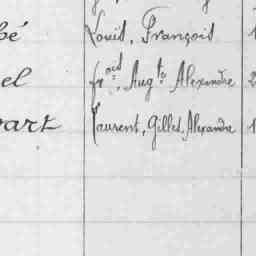 bé Louis, François 1
el fr.ois, Aug.te Alexandre 2
part Laurent, Gilles, Alexandre 1